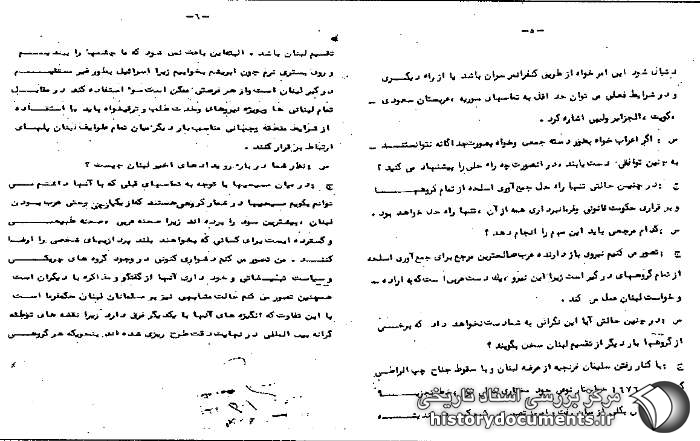 -۵-
دنبال شود این امر خواه از طریق کنفرانس سران باشد یا از راه دیگری
و در شرایط فعلی می توان حد اقل به تماسهای سوریه ، عربستان سعودی ،
کویت ، الجزایر ولیبی اشاره کرد .
س : اگر اعراب خواه بطور دسته جمعی وخواه بصورت جداگانه نتوانستند
به چنین توافقی دست یابند ، در اینصورت چه راه حلی را پیشنهاد می کنید ؟
ج : در چنین حالتی تنها راه حل جمع آوری اسلحه از تمام گروهها
و بر قراری حکومت قانونی وفرمانبرداری همه از آن ، تنها راه حل خواهد بود .
س : کدام مرجعی باید این مهم را انجام دهد ؟
ج : تصور می کنم نیروی باز دارنده عرب صالحترین مرجع برای جمع آوری اسلحه
از تمام گروههای درگیر است زیرا این نیرو ، یك دست عربی است که به اراده
و خواست لبنان عمل می کند .
س : در چنین حالتی آیا این نگرانی به شما دست نخواهد داد که برخی
از گروهها بار دیگر از تقسیم لبنان سخن بگویند ؟
ج : با کنار رفتن سلیمان فرنجیه از عرضه لبنان و با سقوط جناح چپ
۱۹۷۶
-۶-
تقسیم لبنان باشد . البته این باعث نمی شود که ما چشمها را ببندیم
و روی بستری نرم چون ابریشم بخوابیم زیرا اسرائیل بطور غیر مستقیم
درگیر لبنان است واز هر فرصتی ممکن است سوء استفاده کند در مقابل
تمام لبنانی ها وبویژه نیروهای وحدت طلب و ترقیخواه باید با استفاده
از شرایط منطقه وجهانی مناسب بار دیگر میان تمام طوایف لبنان پلهای
ارتباط بر قرار کنند .
س : نظر شما در باره رویدادهای اخیر لبنان چیست ؟
ج : در میان مسیحیها با توجه به تماسهای قبلی که با آنها داشتم می
توانم بگویم مسیحیها در شعار گروهی هستند که از یکپارچگی وحتی عرب بودن
لبنان ، بیشترین سود را برده اند زیرا صحنه عربی ، صحنه طبیعی
و گسترده ایست برای کسانی که بخواهند بلند پروازیهای شخصی را ارضا
کنند . من تصور می کنم دشواری کنونی در وجود گروه های چریکی
و سیاست تبلیغاتی و خود داری آنها از گفتگو و مذاکره با دیگران است
همچنین تصور می کنم حالت مشابهی نیز بر مسلمانان لبنان حکمفرما است
با این تفاوت که انگیزه های آنها با یکدیگر فرق دارد زیرا نقشه های توطئه
گرانه بین المللی در نهایت دقت طرح ریزی شده اند بنحویکه هر گروهی
مرکز بررسی اسناد تاریخی
historydocuments.ir